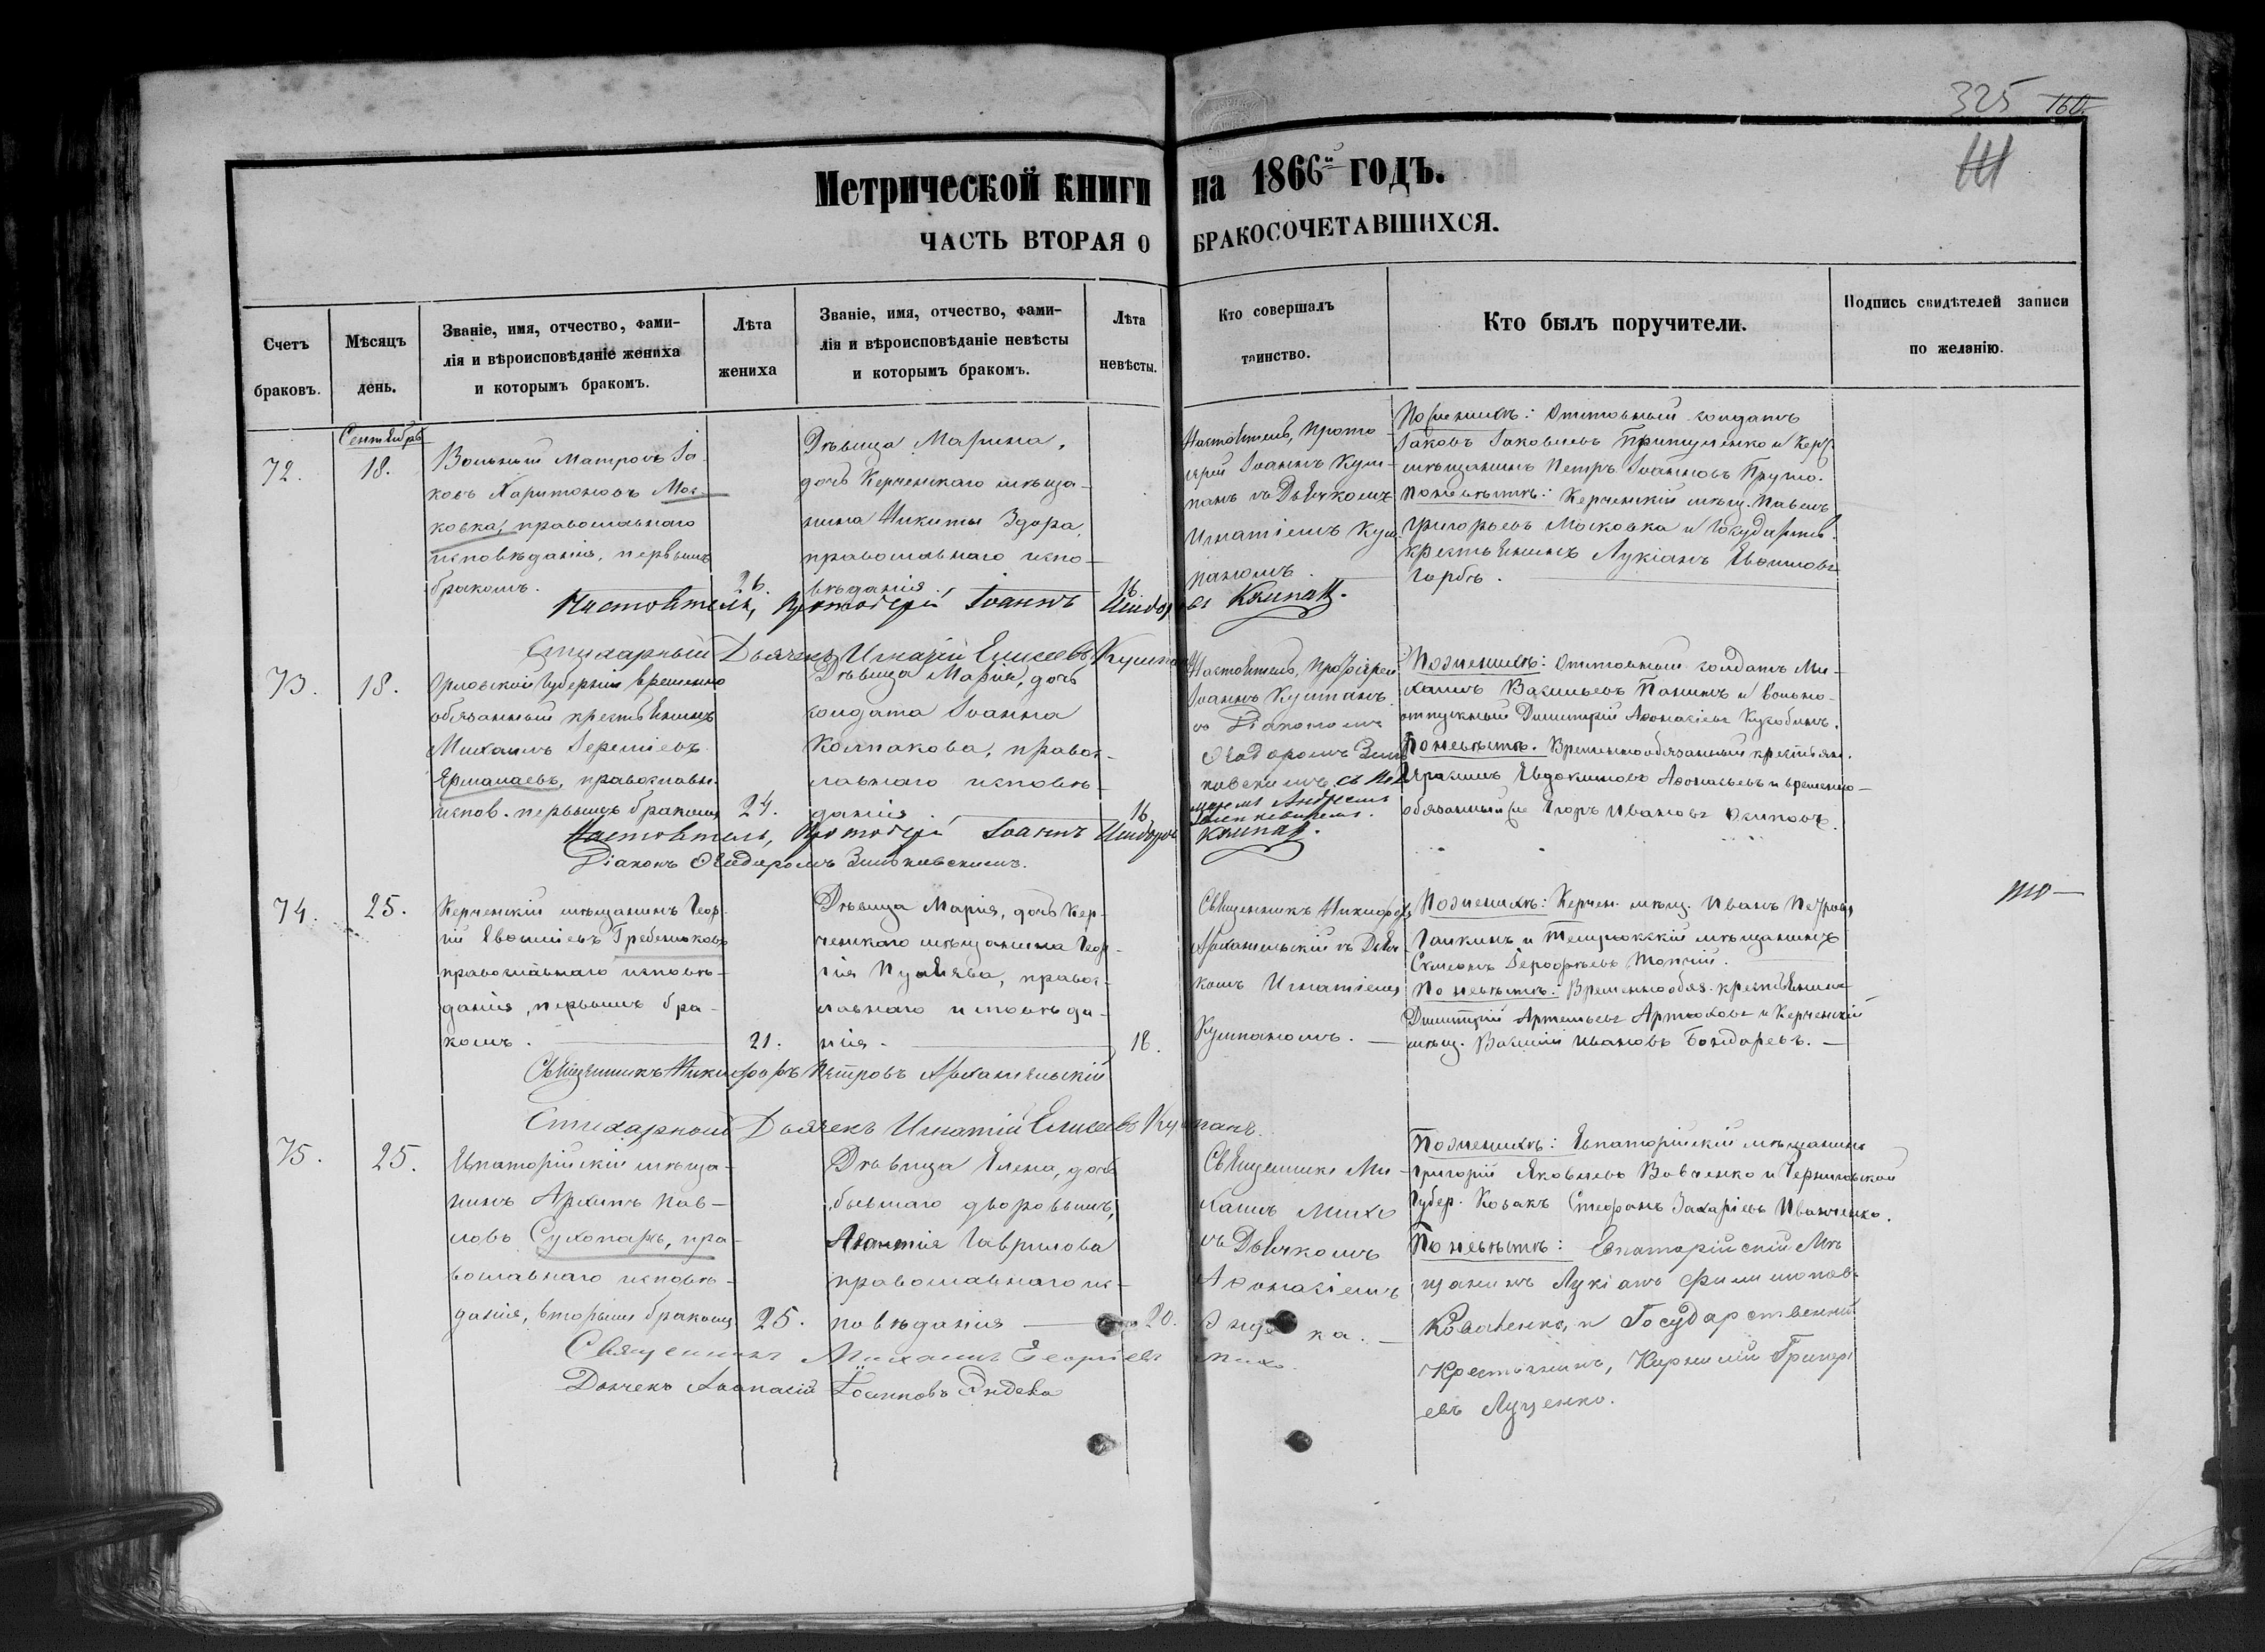 325 160
Метрической книги на 1866й годъ.
ЧАСТЬ ВТОРАЯ О БРАКОСОЧЕТАВШИХСЯ.
Счетъ браковъ.
Мѣсяцъ день.
Званіе, имя, отчество, фами-
лія и вѣроисповѣданіе жениха
и которымъ бракомъ.
Лѣта жениха
Званіе, имя, отчество, фами-
лія и вѣроисповѣданіе невѣсты
и которымъ бракомъ.
Лѣта невѣсты.
Кто совершалъ
таинство.
Кто былъ поручители.
Подпись свидѣтелей записи
по желанію.
Сентября
72.
18.
Вольный Матросъ Іа-
ковъ Харитоновъ Мос-
ковка, православнаго
исповѣданія, первымъ
бракомъ.
26.
Дѣвица Марина,
дочь Керченскаго мѣща-
нина Никиты Здора,
православнаго испо-
вѣданія.
16.
Настоятель, Прото-
іерей Іоаннъ Куш-
панъ съ Дьячкомъ
Игнатіемъ Куш-
паномъ.
По женихѣ: Отставный солдатъ
Іаковъ Іаковлевъ Притуленко и Керч.
мѣщанинъ Петръ Іоанновъ Пругло.
По невѣстѣ: Керченскій мѣщ. Павелъ
Григорьевъ Московка и Государств.
крестьянинъ Лукіанъ Евфимовъ
Горбъ.
Настоятель, Протоіерей Іоаннъ
Стихарный Дьячекъ Игнатій Елисеевъ Кушпанъ
73.
18.
Орловской Губерніи временно
обязанный крестьянинъ
Михаилъ Іереміевъ
Ермалаевъ, православн.
испов. первымъ бракомъ
24.
Дѣвица Марія, дочь
солдата Іоанна
Колпакова, правос-
лавнаго исповѣ-
данія.
16
Настоятель, Протоіерей
Іоаннъ Кушпанъ
съ Діакономъ
Ѳеодоромъ Зинь-
ковскимъ
По женихѣ: Отставный солдатъ Ми-
хаилъ Васильевъ Панинъ и вольно-
отпускный Димитрій Аѳонасіевъ
По невѣстѣ. Временнообязанный крестьян.
Евдокимовъ Аѳонасьевъ и временно-
обязанный Егоръ Ивановъ Осиповъ.
Настоятель, Протоіерей Іоаннъ
Діаконъ Ѳеодоромъ Зиньковскимъ.
74.
25.
Керченскій мѣщанинъ Геор-
гій Евфиміевъ Гребенюковъ
православнаго исповѣ-
данія, первымъ бра-
комъ.
21.
Дѣвица Марія, дочь Кер-
ченскаго мѣщанина Геор-
гія, правос-
лавнаго исповѣда-
нія.
18.
Священникъ Никифоръ
Архангельскій съ Дьяч-
комъ Игнатіемъ
Кушпаномъ.
По женихѣ: Керчен. мѣщ. Иванъ Петровъ
Галкинъ и Темрюкскій мѣщанинъ
Симеонъ Топчій.
По невѣстѣ: Временнообяз. крестьянинъ
Димитрій Артемьевъ Артюховъ и Керченскій
мѣщ. Василій Ивановъ Бондаревъ.
Священникъ Никифоръ Петровъ Архангельскій
Стихарный Дьячекъ Игнатій Елисеевъ Кушпанъ.
75.
25.
Евпаторійскій мѣща-
нинъ Архипъ Пав-
ловъ Сухопаръ, пра-
вославнаго исповѣ-
данія, вторымъ бракомъ
25.
Дѣвица Елена, дочь
бывшаго дворовымъ,
Гаврилова
православнаго ис-
повѣданія
20.
Священникъ Ми-
хаилъ Михо
съ Дьячкомъ
Аѳонасіемъ
По женихѣ: Евпаторійскій мѣщанинъ
Григорій Яковлевъ Вовченко и Черниговской
Губер. Козакъ Стефанъ Захаріевъ Иванченко.
По невѣстѣ: Евпаторійскій Мѣ
щанинъ Лукіанъ Филимоновъ
Коваленко, и Государственный
Крестьянинъ, Кириллъ Григорі
евъ Луценко.
Священникъ Михаилъ Георгіевъ Михо.
Дьячекъ Аѳанасій Іоанновъ Эндека